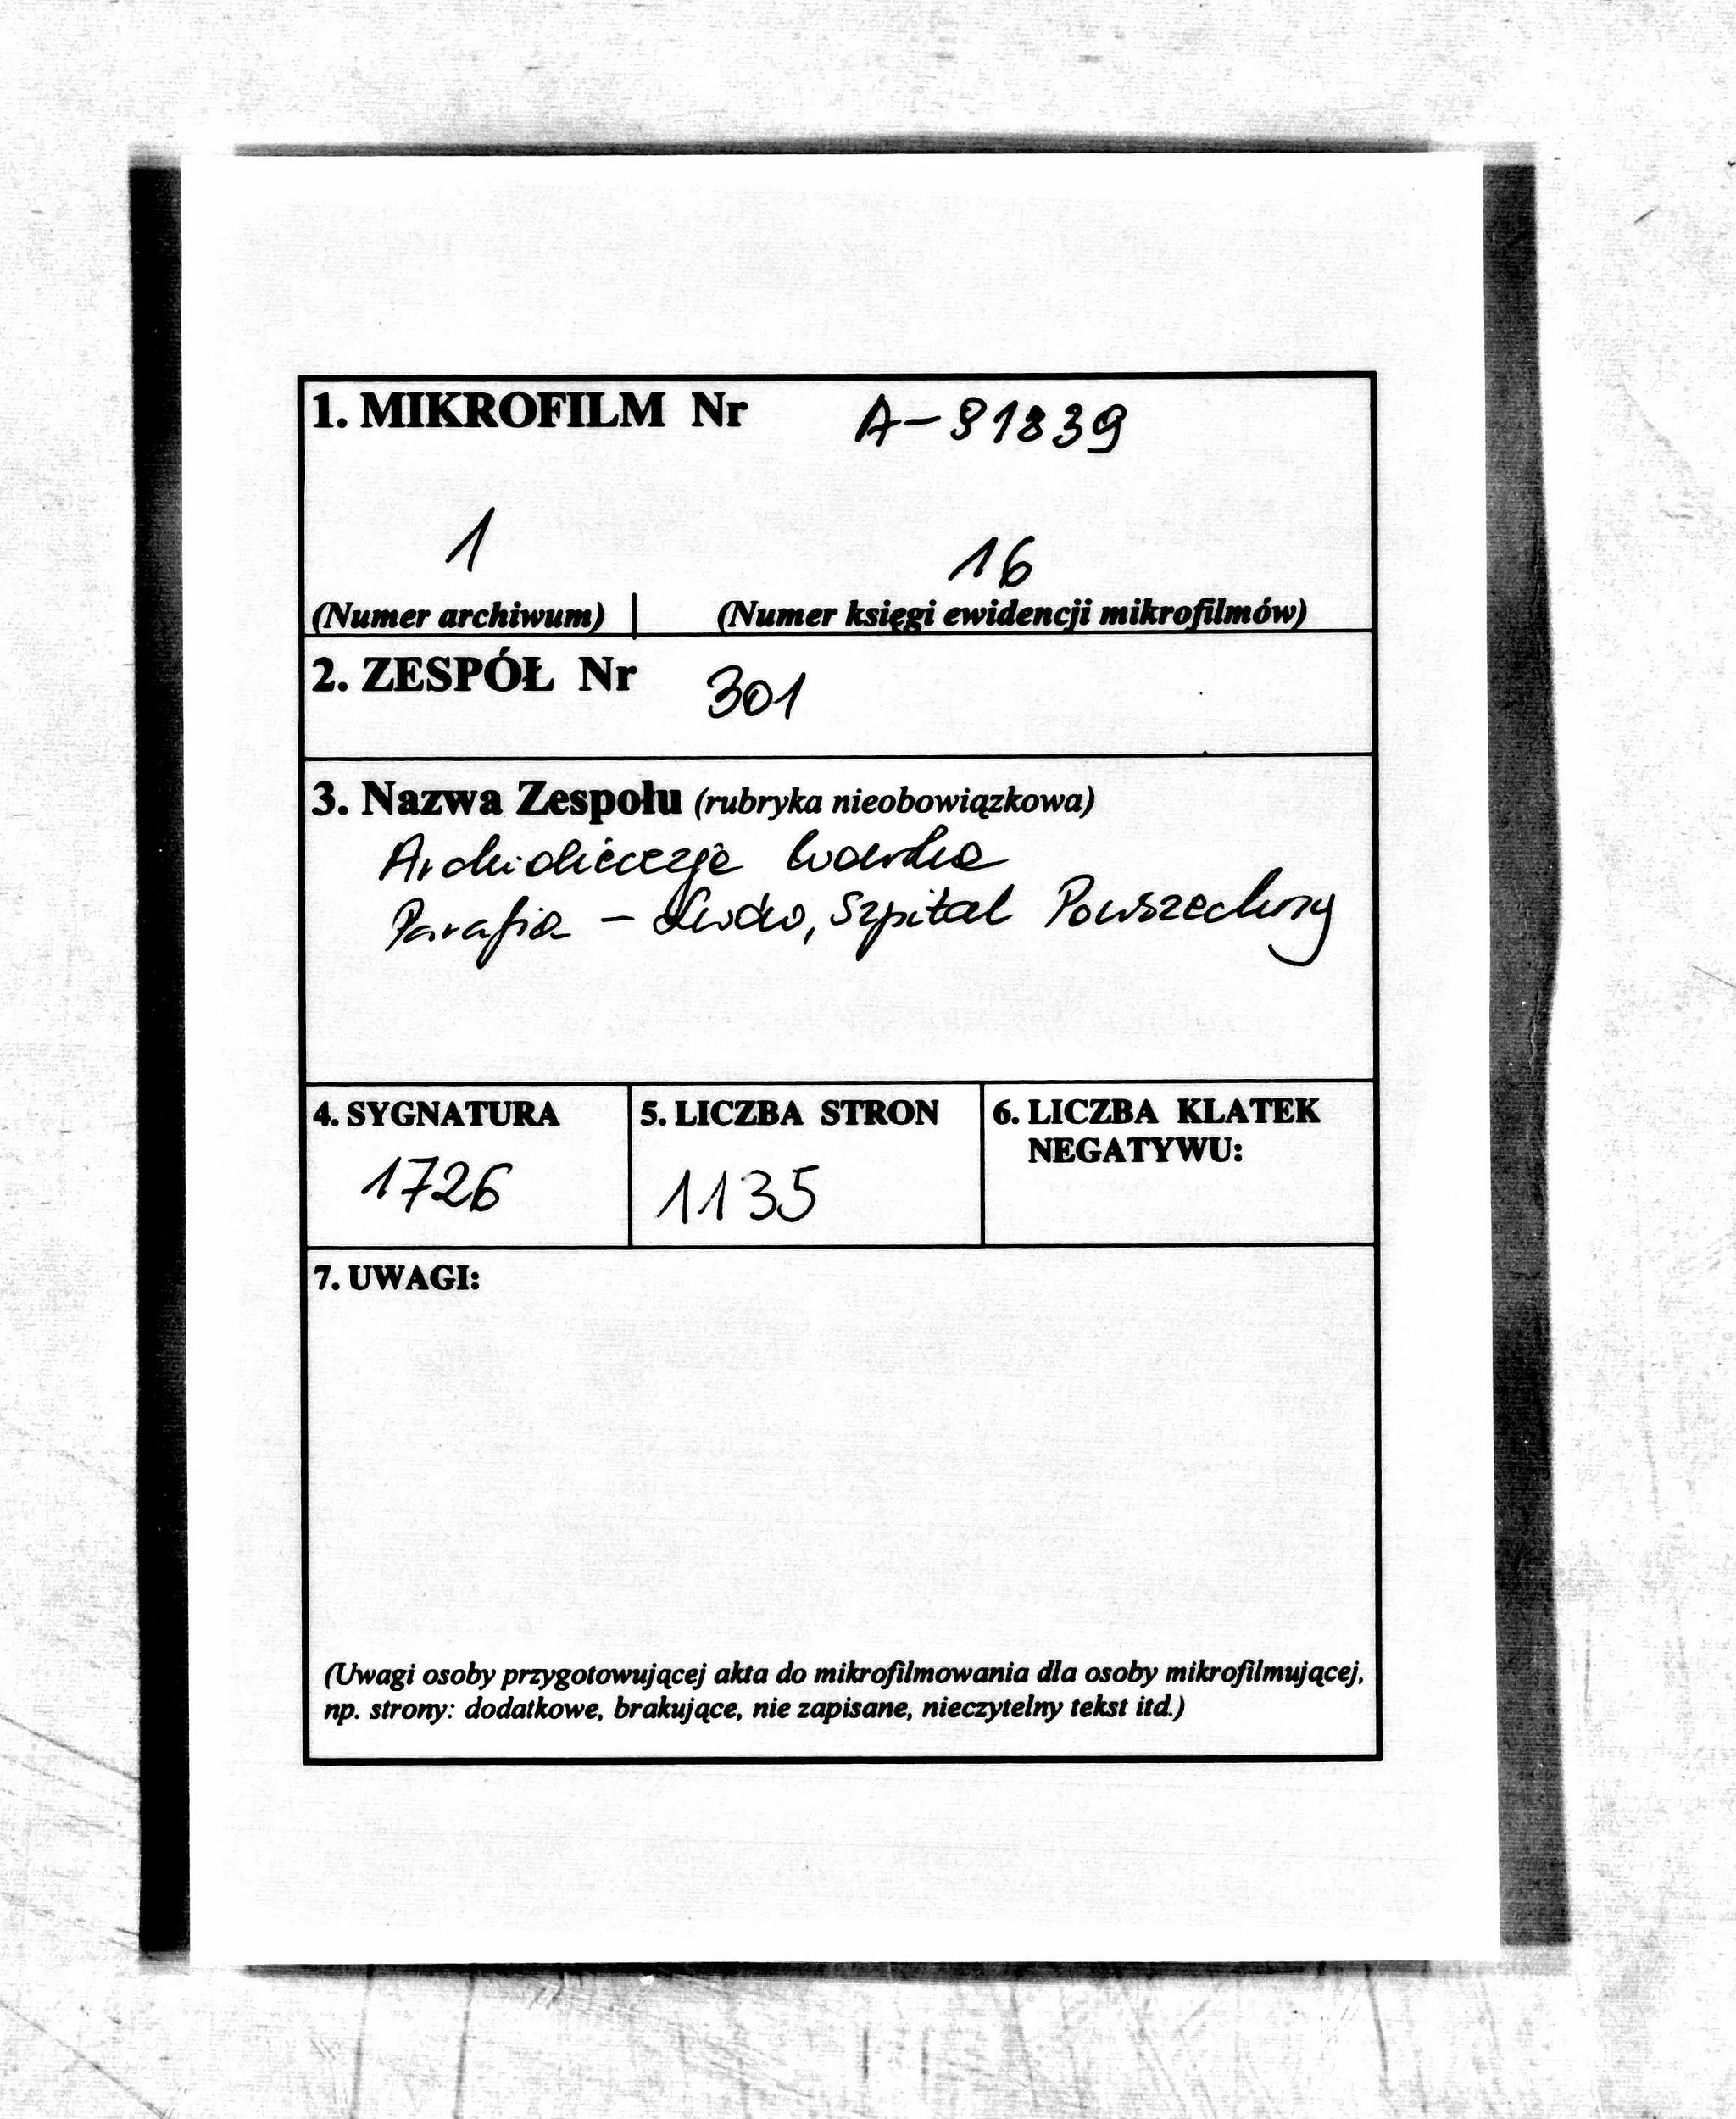 1. MIKROFILM Nr A-81839
1 16
(Numer archiwum) | (Numer księgi ewidencji mikrofilmów)
2. ZESPÓŁ Nr 301
3. Nazwa Zespołu (rubryka nieobowiązkowa)
Archidiecezja lwowska
Parafia - Lwów, Szpital Powszechny
4. SYGNATURA 5. LICZBA STRON 6. LICZBA KLATEK
NEGATYWU:
1726 1135
7. UWAGI:
(Uwagi osoby przygotowującej akta do mikrofilmowania dla osoby mikrofilmującej,
np. strony: dodatkowe, brakujące, nie zapisane, nieczytelny tekst itd.)